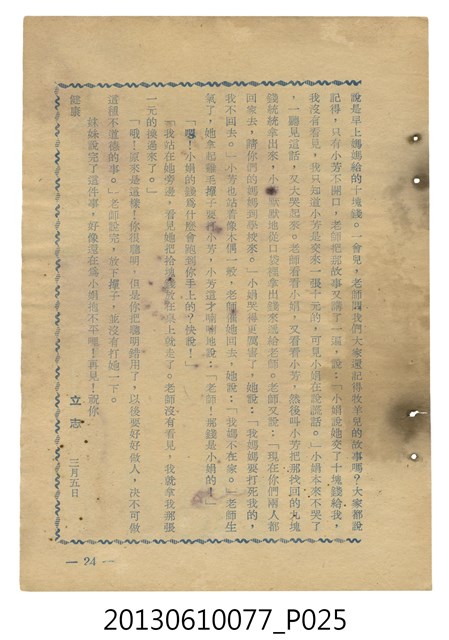 說是早上媽媽給的十塊錢。一會見，老師問我們大家還記得牧羊兒的故事嗎？大家都說
記得，只有小芳不開口，老師把那故事又講了一遍，說：「小娟說她交了十塊錢給我，
我沒有看見，我只知道小芳是交來一張十元的，可見小娟在說謊話。」小娟本來不哭了
，一聽見這話，又大哭起來。老師看看小娟，又看看小芳，然後叫小芳把那找回的九塊
錢統統拿出來，小芳默默地從口袋裡拿出錢來遞給老師。老師又說：「現在你們兩人都
回家去，請你們的媽媽到學校來。」小娟哭得更厲害了，她說：「我媽媽要打死我的，
我不回去。」小芳也站着像木偶一般，老師推她回去，她說：「我媽不在家。」老師生
氣了，她拿把雞毛撣子要打小芳，小芳這才喃喃地說：「老師！那錢是小娟的！」
「嗯！小娟的錢爲什麼會跑到你手上的？快說！」
「我站在她旁邊，看見她把拾塊錢放在桌上就走了。老師沒有看見，我就拿我那張
一元的換過來了。」
「哦！原來是這樣！你很聰明，但是你把聰明錯用了，以後要好好做人，決不可做
這種不道德的事。」老師說完，放下撣子，並沒有打她一下。
妹妹說完了這件事，好像還在爲小娟抱不平呢！再見！祝你
健康
立志　三月五日
— 24 —
20130610077_P025